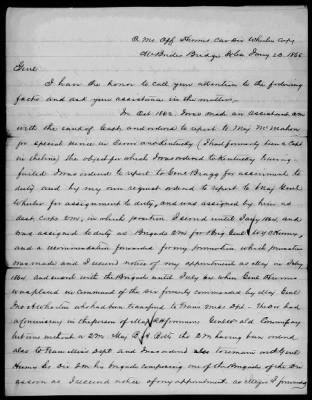 Qr Mr Off Humes Cav Div Wheelers Corps
McBrides Bridge S Ca Jany 23. 1865
Genl
I have the honor to call your attention to the following
facts and ask your assistance in the matter,
In Oct 1862 I was made an assistant qm
with the rank of Capt. and ordered to report to Maj McMahon
for special service in Tenn and Kentucky (I had formerly been a Capt
in the line) the object for which I was ordered to Kentucky having
failed I was ordered to report to Genl Bragg for assignment to
duty and by my own request ordered to report to Maj Genl
Wheeler for assignment to duty, and was assigned by him as
Asst. Corps QM, in which position I served until Jany 1864, and
was assigned to duty as Brigade QM for Brig Genl W Y C Humes,
and a recommendation forwarded for my promotion which promotion
was made and I received notice of my appointment as Maj in July
1864 and served with the Brigade until July when Genl Humes
was placed in command of the Div formerly commanded by Maj Genl
Jno A Wharton who had been transferred to Trans Miss Dpt - The Div had
a Commissary in the person of Maj
but was without a QM Maj B the QM having been ordered
also to Trans Miss Dept and I was ordered to remain with Genl
Humes as Div QM his brigade composing one of the Brigades of the Div
as soon as I received notice of my appointment as Major I forwarded